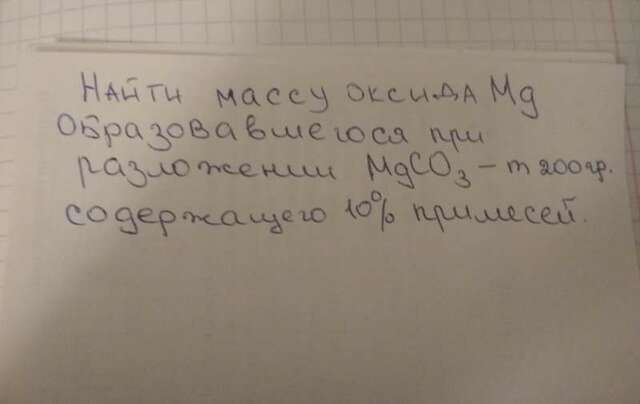 Найти массу оксида Mg
образовавшегося при
разложении MgCO₃ – m 200гр.
содержащего 10% примесей.